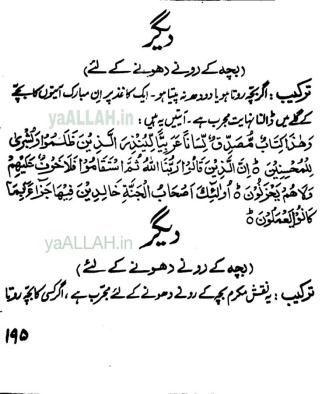 دیگر
(بچہ کے رونے دھونے کے لئے)
ترکیب: اگر بچہ روتا ہو یا دودھ نہ پیتا ہو۔ ایک کاغذ پر اِن مبارک آیتوں کا بچے
کے گلے میں ڈالنا نہایت مجرب ہے۔ آیتیں یہ ہیں:
yaALLAH.in
وَهٰذَا كِتَابٌ مُّصَدِّقٌ لِّسَانًا عَرَبِيًّا لِّيُنْذِرَ الَّذِيْنَ ظَلَمُوْا وَبُشْرٰى
لِلْمُحْسِنِيْنَ ○ اِنَّ الَّذِيْنَ قَالُوْا رَبُّنَا اللهُ ثُمَّ اسْتَقَامُوْا فَلَا خَوْفٌ عَلَيْهِمْ
وَلَا هُمْ يَحْزَنُوْنَ ○ اُولٰئِكَ اَصْحَابُ الْجَنَّةِ خَالِدِيْنَ فِيْهَا جَزَاءً بِمَا
كَانُوْا يَعْمَلُوْنَ ○
yaALLAH.in
دیگر
(بچہ کے رونے دھونے کے لئے)
ترکیب: یہ نقش مکرم بچہ کے رونے دھونے کے لئے مجرب ہے، اگر کسی کا بچہ روتا
۱۹۵